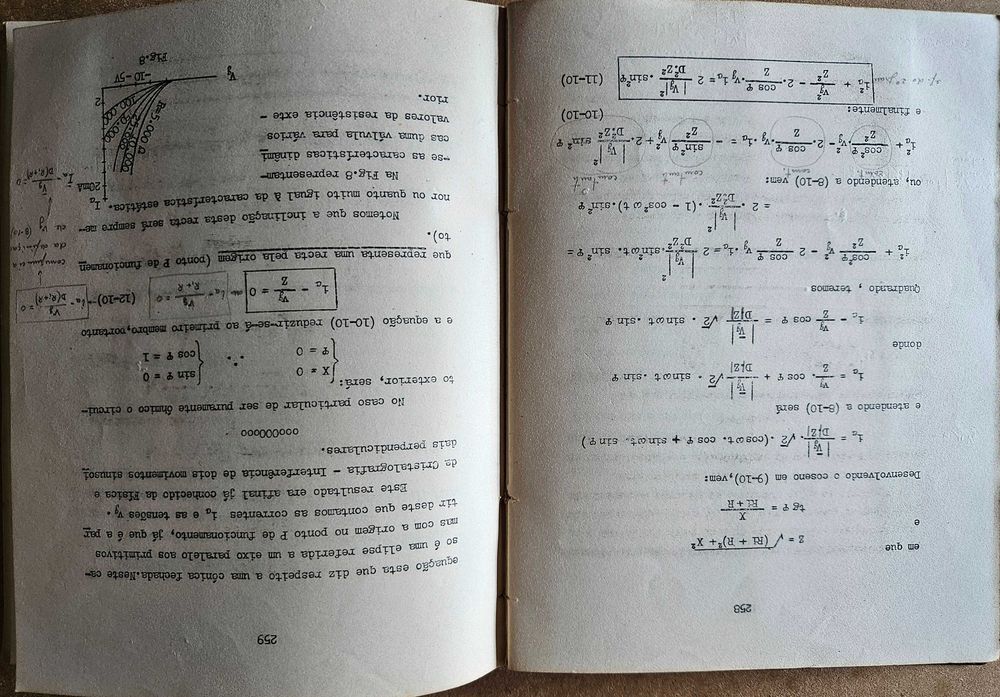 258
em que
Z = √(Ri + R)² + X²
e
tg φ = X / Ri + R
Desenvolvendo o coseno em (9-10), vem:
i_a = |V̅g| / D|Z| · √2 · (cosωt. cos φ + sinωt. sin φ)
e atendendo a (8-10) será
i_a = Vg / Z · cos φ + |V̅g| / D|Z| √2 · sinωt · sin φ
donde
i_a - Vg / Z cos φ = |V̅g| / D|Z| √2 · sinωt · sin φ
Quadrando, teremos
i²_a + cos²φ / Z² V²g - 2 cos φ / Z Vg·i_a = 2 |V̅g|² / D²·Z² ·sin²ωt. sin²φ =
= 2 · |V̅g|² / D²·Z² · (1 - cos²ωt)·sin²φ
ou, atendendo a (8-10) vem:
i²_a + cos²φ / Z² V²g - 2· cos φ / Z ·Vg·i_a = - sin²φ / Z² V²g + 2· |V̅g|² / D²·Z² sin²φ
(10-10)
e finalmente:
i²_a + V²g / Z² - 2· cos φ / Z ·Vg i_a = 2 |V̅g|² / D²·Z² ·sin²φ (11-10)
259
equação esta que diz respeito a uma cónica fechada.Neste ca-
so é uma elipse referida a um eixo paralelo aos primitivos
mas com a origem no ponto P de funcionamento, já que é a par
tir deste que contamos as correntes i_a e as tensões vg.
Este resultado era afinal já conhecido da Física e
da Cristalografia - Interferência de dois movimentos sinusoi
dais perpendiculares.
ooooOoooo
No caso particular de ser puramente óhmico o circui-
to exterior, será: { X = 0 φ = 0 ∴ { sin φ = 0 cos φ = 1
e a equação (10-10) reduzir-se-á ao primeiro membro,portanto
i_a - Vg / Z = 0 i_a - Vg / Ri+R = 0 (12-10) i_a - Vg / D(Ri+R) = 0
que representa uma recta pela origem (ponto P de funcionamen
to).
Notemos que a inclinação desta recta será sempre me-
nor ou quanto muito igual à da característica estática.
Na Fig.8 representam-
-se as características dinâmi
cas duma válvula para vários
valores da resistência exte -
rior.
I_a
20mA
R=5.000 Ω
2
-10 -5V
Vg
Fig.8